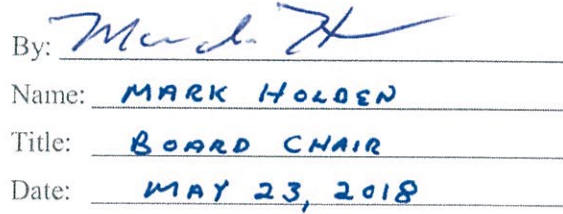 By:
Name: MARK HOLDEN
Title: BOARD CHAIR
Date: MAY 23, 2018